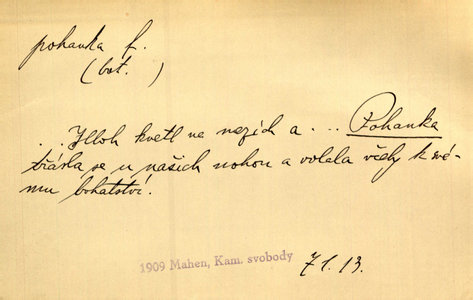 pohanka f.
(bot. )
... Hloh kvetl na mezích a ... Pohanka
třásla se u našich nohou a volala včely k své-
mu bohatství.
1909 Mahen, Kam. svobody 71.13.